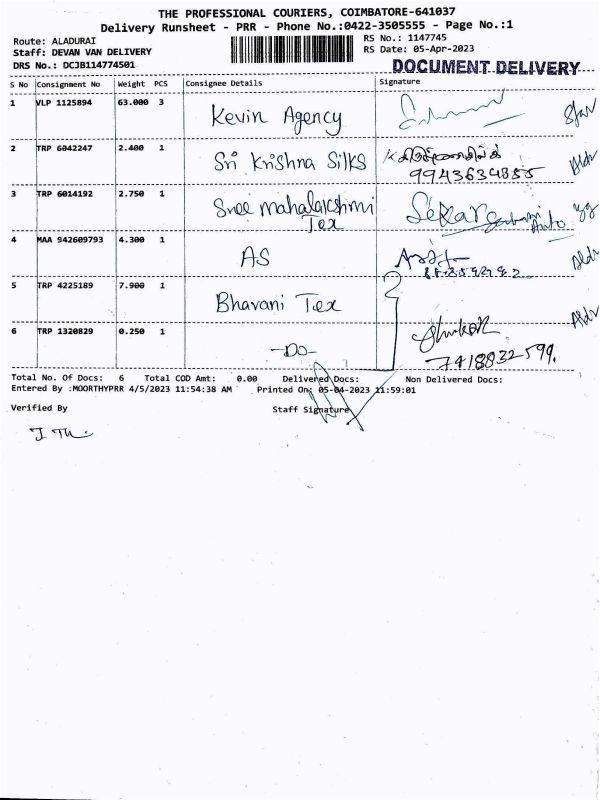 THE PROFESSIONAL COURIERS, COIMBATORE-641037
Delivery Runsheet - PRR - Phone No.:0422-3505555 - Page No.:1
Route: ALADURAI RS No.: 1147745
Staff: DEVAN VAN DELIVERY RS Date: 05-Apr-2023
DRS No.: DCJB114774501 DOCUMENT DELIVERY
S No Consignment No Weight PCS Consignee Details Signature
1 VLP 1125894 63.000 3 Kevin Agency
2 TRP 6042247 2.400 1 Sri Krishna Silks
9943634855
3 TRP 6014192 2.750 1 Sree Mahalakshmi Tex Sekar
4 MAA 942609793 4.300 1 AS
5 TRP 4225189 7.900 1 Bhavani Tex
6 TRP 1320829 0.250 1 -Do-
7418832599.
Total No. Of Docs: 6 Total COD Amt: 0.00 Delivered Docs: Non Delivered Docs:
Entered By :MOORTHYPRR 4/5/2023 11:54:38 AM Printed On: 05-04-2023 11:59:01
Verified By Staff Signature